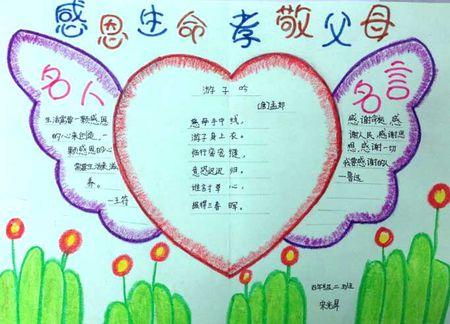 感恩生命 孝敬父母
名人
生活需要一颗感恩
的心来创造,一
颗感恩的心
需要生活来滋
养。
—王符
游子吟
(唐)孟郊
慈母手中线,
游子身上衣。
临行密密缝,
意恐迟迟归。
谁言寸草心,
报得三春晖。
名言
感谢命运,感
谢人民,感谢思
想,感谢一切
我要感谢的人
—鲁迅
四年级,二班